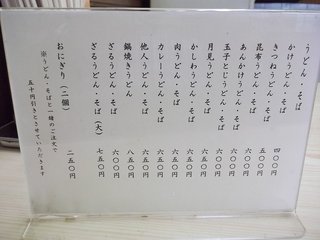 うどん・そば
かけうどん・そば 四〇〇円
きつねうどん・そば 五〇〇円
昆布うどん・そば 五〇〇円
あんかけうどん・そば
玉子とじうどん・そば 六〇〇円
月見うどん・そば
かしわうどん・そば 六〇〇円
肉うどん・そば 六〇〇円
カレーうどん・そば 六〇〇円
他人うどん・そば
鍋焼きうどん 八五〇円
ざるうどん・そば 六〇〇円
ざるうどん・そば（大） 七五〇円
おにぎり（二個） 二五〇円
※うどん・そばと一緒のご注文で
五十円引きとさせていただきます